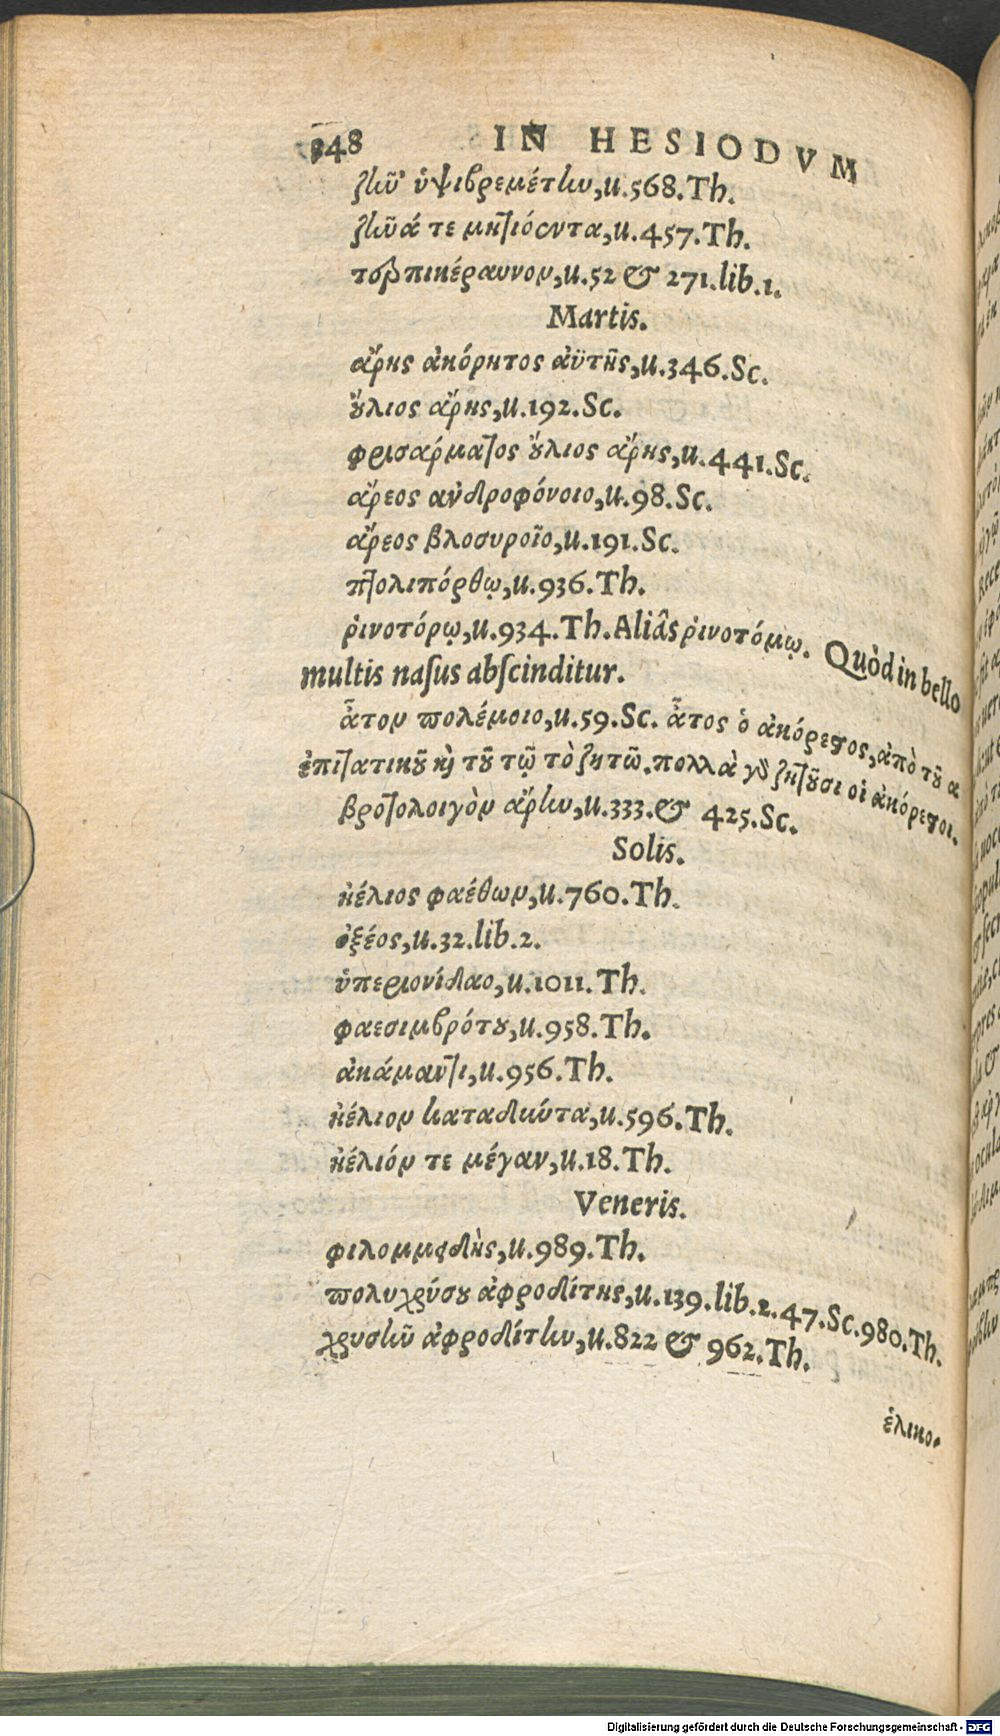 248 IN HESIODVM
ζῆν ὑψιβρεμέτην,u.568.Th.
ζῆνά τε μητιόεντα,u.457.Th.
τερπικέραυνον,u.52 & 271.lib.1.
Martis.
ἄρης ἀκόρητος ἀϋτῆς,u.346.Sc.
ὔλιος ἄρης,u.192.Sc.
φρισαρματος ὔλιος ἄρης,u.441.Sc.
ἄρεος ἀνδροφόνοιο,u.98.Sc.
ἄρεος βλοσυροῖο,u.191.Sc.
πτολιπόρθῳ,u.936.Th.
ῥινοτόρῳ,u.934.Th.Aliâs ῥινοτόμῳ. Quòd in bello
multis nasus abscinditur.
ἆτον πολέμοιο,u.59.Sc. ἆτος ὁ ἀκόρεστος,ἀπὸ τοῦ α
ἐπιτατικοῦ καὶ τοῦ τῶ τὸ ζητῶ.πολλὰ γὰρ ζητοῦσι οἱ ἀκόρεστοι.
βροτολοιγὸν ἄρην,u.333.& 425.Sc.
Solis.
ἠέλιος φαέθων,u.760.Th.
ὀξέος,u.32.lib.2.
ὑπεριονίδαο,u.1011.Th.
φαεσιμβρότου,u.958.Th.
ἀκάμαντι,u.956.Th.
ἠέλιον καταδύντα,u.596.Th.
ἠέλιόν τε μέγαν,u.18.Th.
Veneris.
φιλομμειδὴς,u.989.Th.
πολυχρύσου ἀφροδίτης,u.139.lib.2.47.Sc.980.Th.
χρυσῆν ἀφροδίτην,u.822 & 962.Th.
ἑλικο-
Digitalisierung gefördert durch die Deutsche Forschungsgemeinschaft - DFG